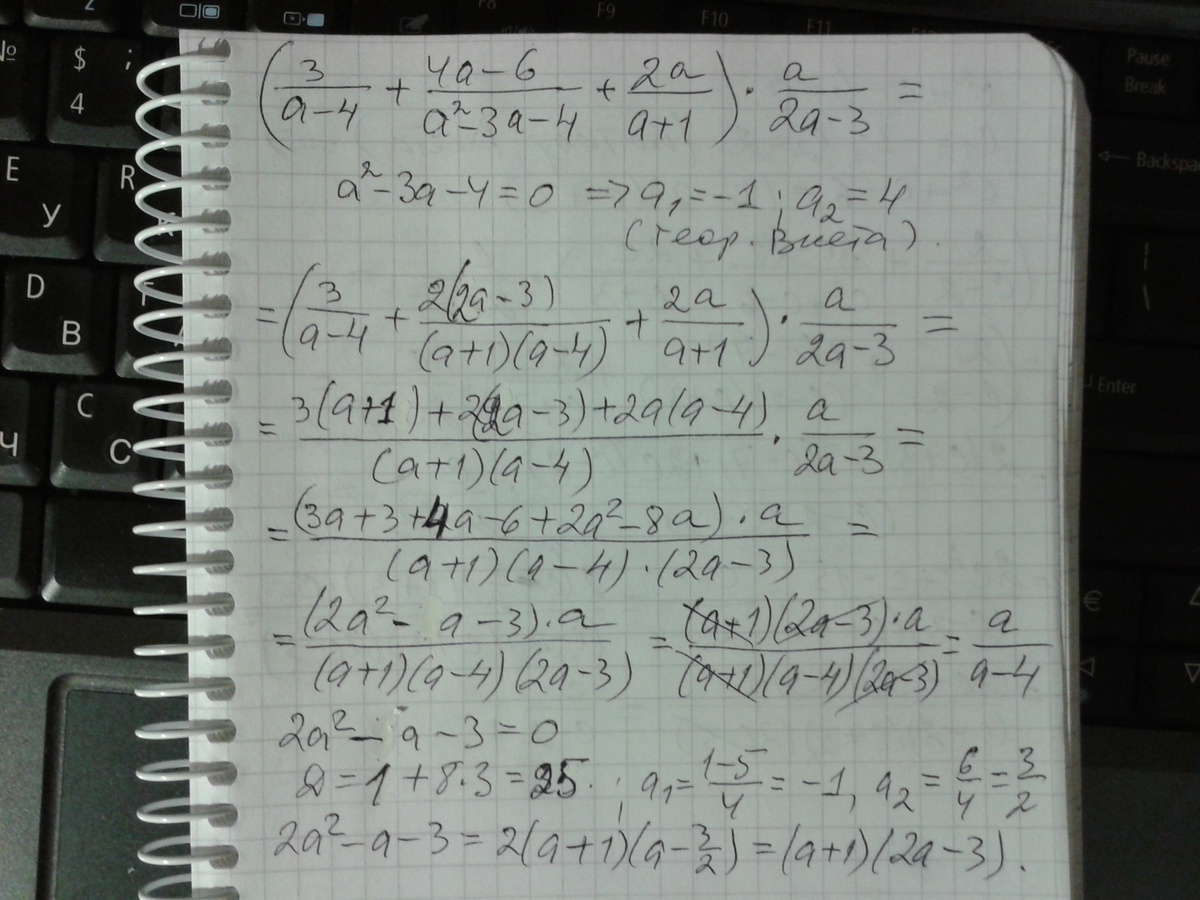 F8 F9 F10 F11
№ $ ; 4
Pause Break
Backspa
E У R
D В
C С Ч
Enter
€
( 3/(a-4) + (4a-6)/(a²-3a-4) + 2a/(a+1) ) · a/(2a-3) =
a²-3a-4=0 => a₁=-1; a₂=4
(теор. Виета).
= ( 3/(a-4) + 2(2a-3)/((a+1)(a-4)) + 2a/(a+1) ) · a/(2a-3) =
= (3(a+1)+2(2a-3)+2a(a-4))/((a+1)(a-4)) · a/(2a-3) =
= ((3a+3+4a-6+2a²-8a)·a)/((a+1)(a-4)·(2a-3)) =
= ((2a²-a-3)·a)/((a+1)(a-4)(2a-3)) = ((a+1)(2a-3)·a)/((a+1)(a-4)(2a-3)) = a/(a-4)
2a²-a-3=0
D=1+8·3=25; a₁=(1-5)/4=-1, a₂=6/4=3/2
2a²-a-3=2(a+1)(a-3/2)=(a+1)(2a-3).